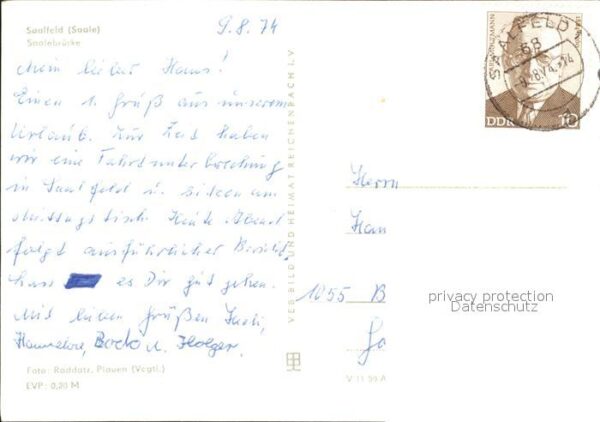 Saalfeld (Saale)
Saalebrücke
9.8.74
Mein lieber Hans!
Einen 1. Gruß aus unserem
Urlaub. Zur Zeit haben
wir eine Fahrtunterbrechung
in Saalfeld u. sitzen am
Mittagstisch. Heute Abend
folgt ausführlicher Bericht.
Lass es Dir gut gehen.
Mit lieben Grüßen
Hannelore, Bodo u. Holger.
Foto: Raddatz, Plauen (Vogtl.)
EVP: 0,20 M
VEB BILD UND HEIMAT REICHENBACH I. V.
V 11 59 A
SAALFELD
68
DDR 10
Herrn
Han
1055 B
privacy protection
Datenschutz